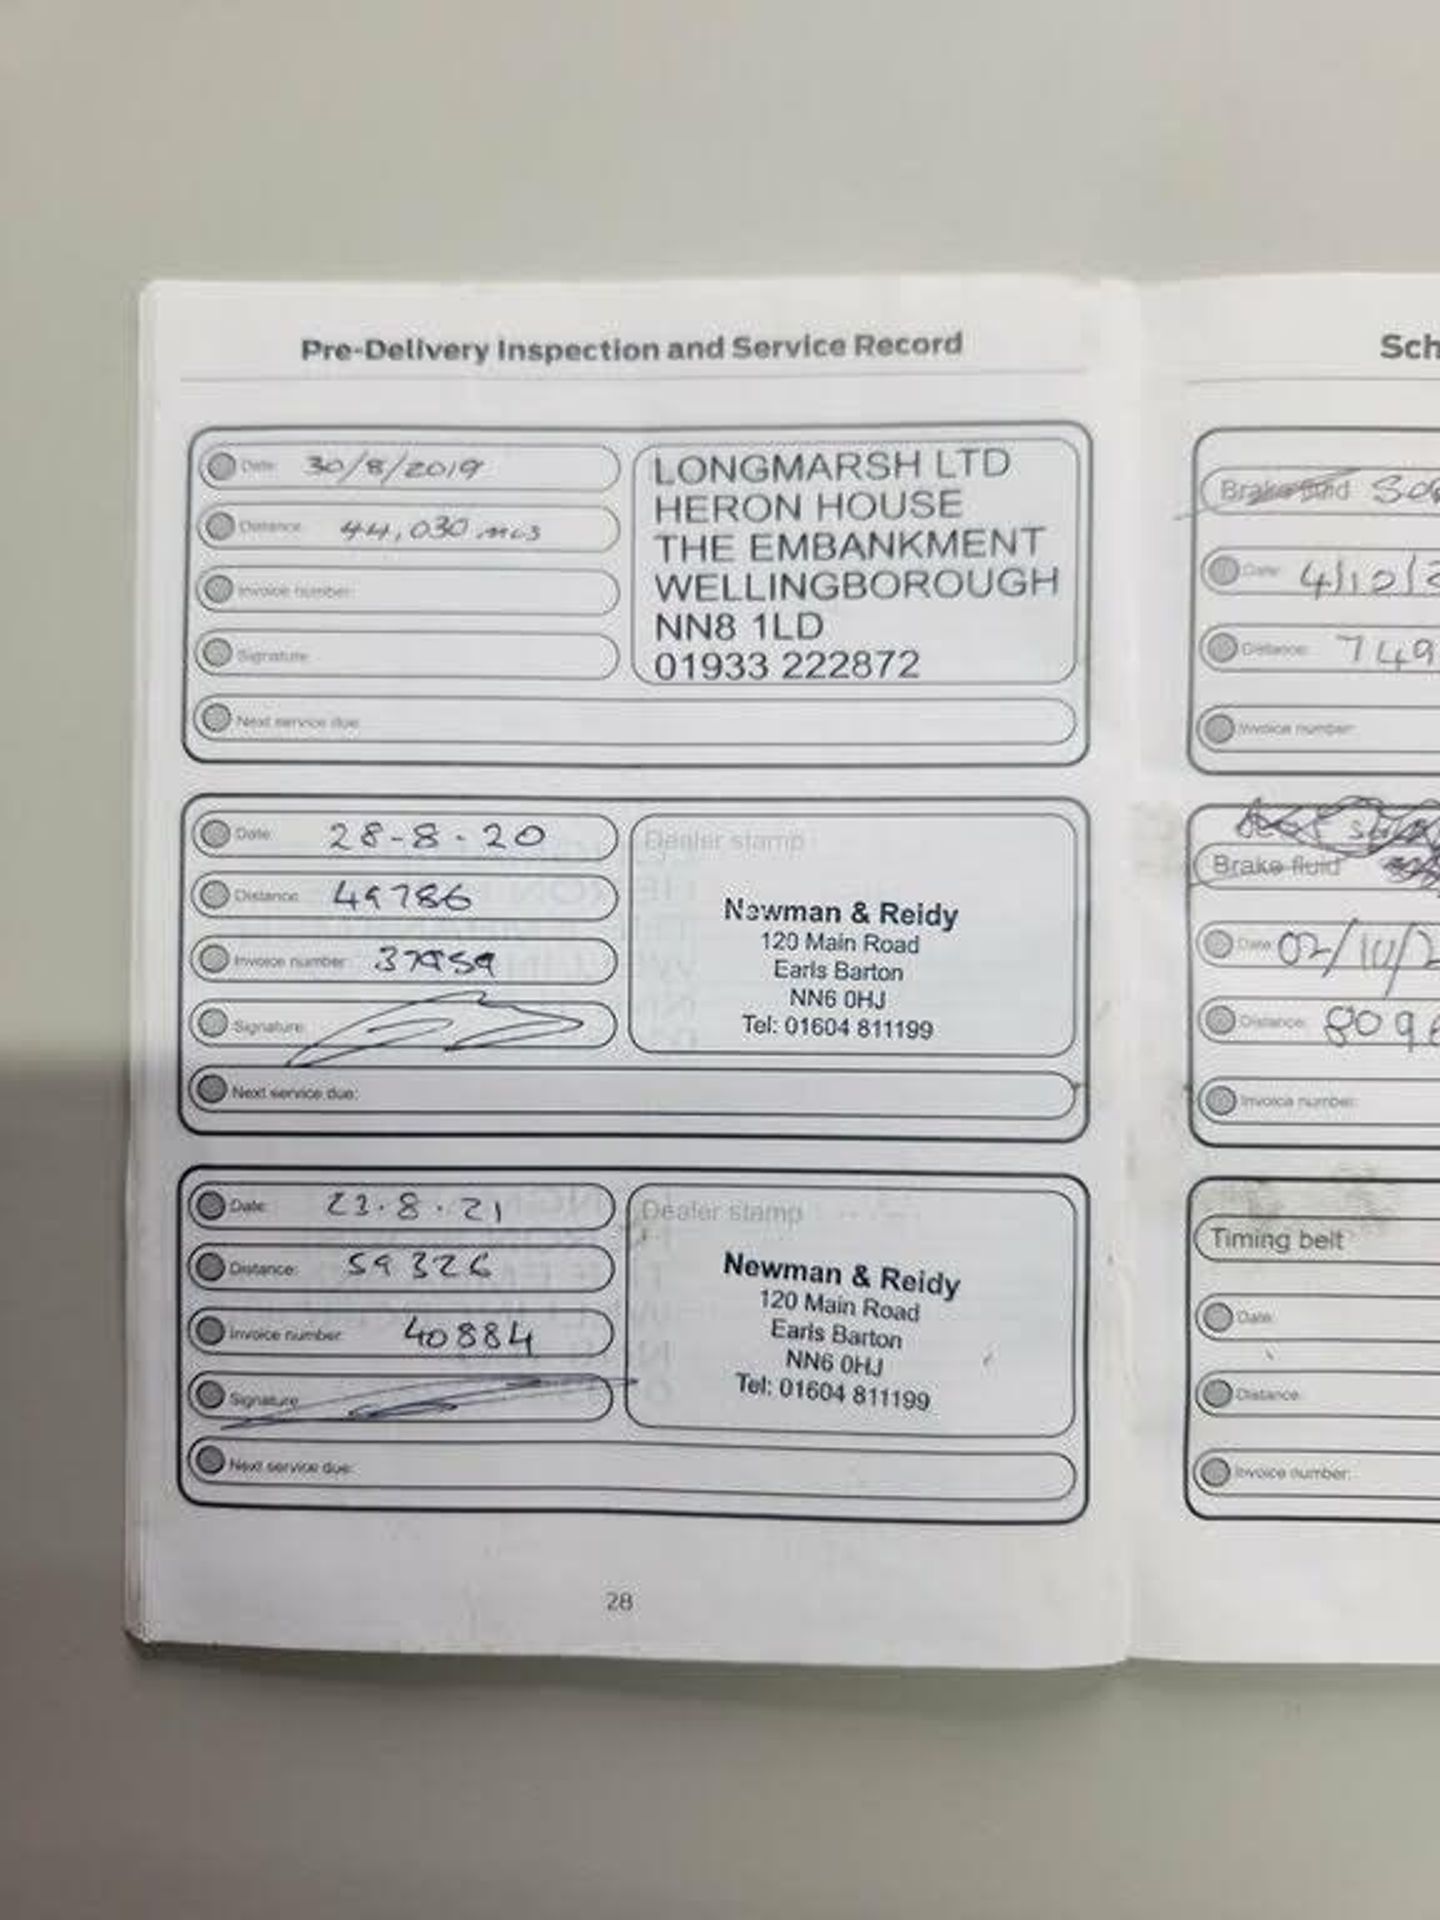 Pre-Delivery Inspection and Service Record
Date: 30/8/2019
Distance: 44,030 mls
Invoice number:
Signature:
Next service due:
LONGMARSH LTD
HERON HOUSE
THE EMBANKMENT
WELLINGBOROUGH
NN8 1LD
01933 222872
Date: 28-8-20
Distance: 49786
Invoice number:
Signature:
Next service due:
Dealer stamp
Newman & Reidy
120 Main Road
Earls Barton
NN6 0HJ
Tel: 01604 811199
Date: 23.8.21
Distance: 59326
Invoice number: 40884
Signature:
Next service due:
Dealer stamp
Newman & Reidy
120 Main Road
Earls Barton
NN6 0HJ
Tel: 01604 811199
28
Sch
Brake fluid
Date: 4/10/2
Distance: 749
Invoice number:
Brake fluid
Date: 02/10/2
Distance: 809
Invoice number:
Timing belt
Date:
Distance:
Invoice number: